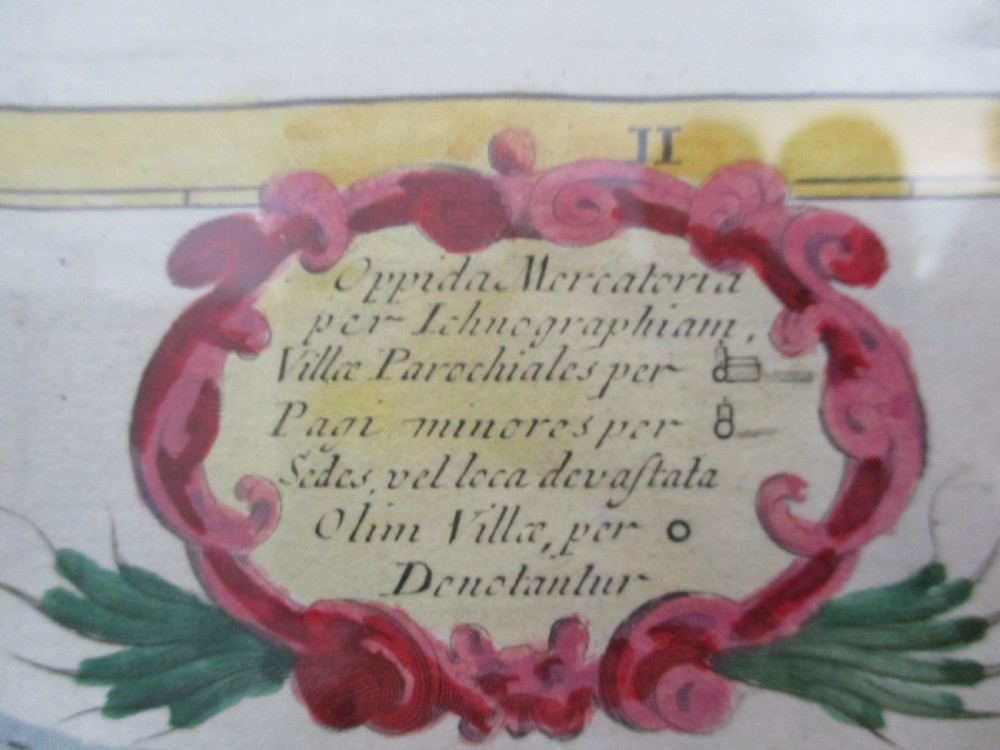 II
Oppida Mercatoria
per Ichnographiam,
Villæ Parochiales per
Pagi minores per
Sedes, vel loca devaſtata
Olim Villæ, per
Denotantur